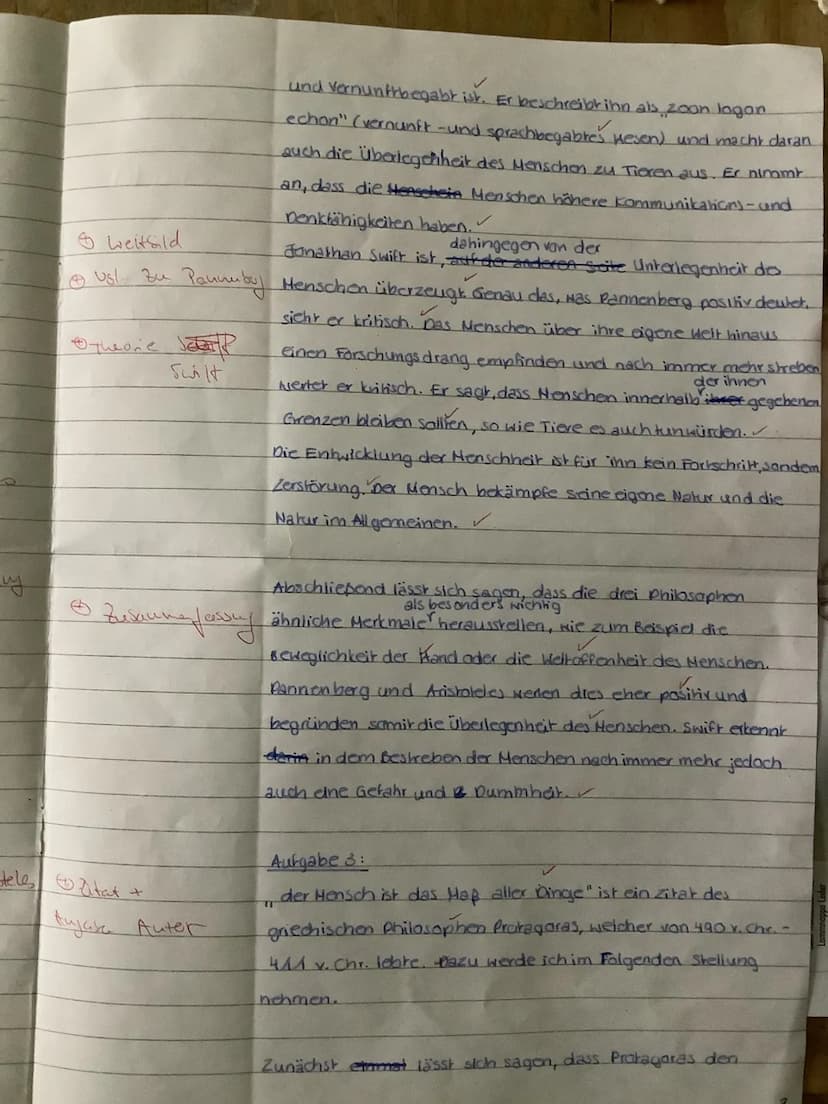 und vernunftbegabt ist. Er beschreibt ihn als „zoon logon
echon" (vernunft-und sprachbegabtes Wesen) und macht daran
auch die Überlegenheit des Menschen zu Tieren aus. Er nimmt
an, dass die Menschen höhere Kommunikations-und
Denkfähigkeiten haben.
⊕ Weltbild
dahingegen von der
Jonathan Swift ist, auf der anderen Seite Unterlegenheit des
⊕ Vgl. zu Pannenberg
Menschen überzeugt. Genau das, was Pannenberg positiv deutet,
sieht er kritisch. Das Menschen über ihre eigene Welt hinaus
⊕ Theorie
Swift
einen Forschungsdrang empfinden und nach immer mehr streben
der ihnen
wertet er kritisch. Er sagt, dass Menschen innerhalb ihrer gegebenen
Grenzen bleiben sollten, so wie Tiere es auch tun würden.
Die Entwicklung der Menschheit ist für ihn kein Fortschritt, sondern
Zerstörung. Der Mensch bekämpfe seine eigene Natur und die
Natur im Allgemeinen.
Abschließend lässt sich sagen, dass die drei Philosophen
als besonders wichtig
⊕ Zusammenfassung
ähnliche Merkmale herausstellen, wie zum Beispiel die
Beweglichkeit der Hand oder die Weltoffenheit des Menschen.
Pannenberg und Aristoteles werten dies eher positiv und
begründen somit die Überlegenheit des Menschen. Swift erkennt
darin in dem Bestreben der Menschen nach immer mehr jedoch
auch eine Gefahr und Dummheit.
Aufgabe 3:
teles
⊕ Zitat +
Autor
„der Mensch ist das Maß aller Dinge" ist ein Zitat des
griechischen Philosophen Protagoras, welcher von 490 v. Chr. -
411 v. Chr. lebte. Dazu werde ich im Folgenden Stellung
nehmen.
Zunächst einmal lässt sich sagen, dass Protagoras den